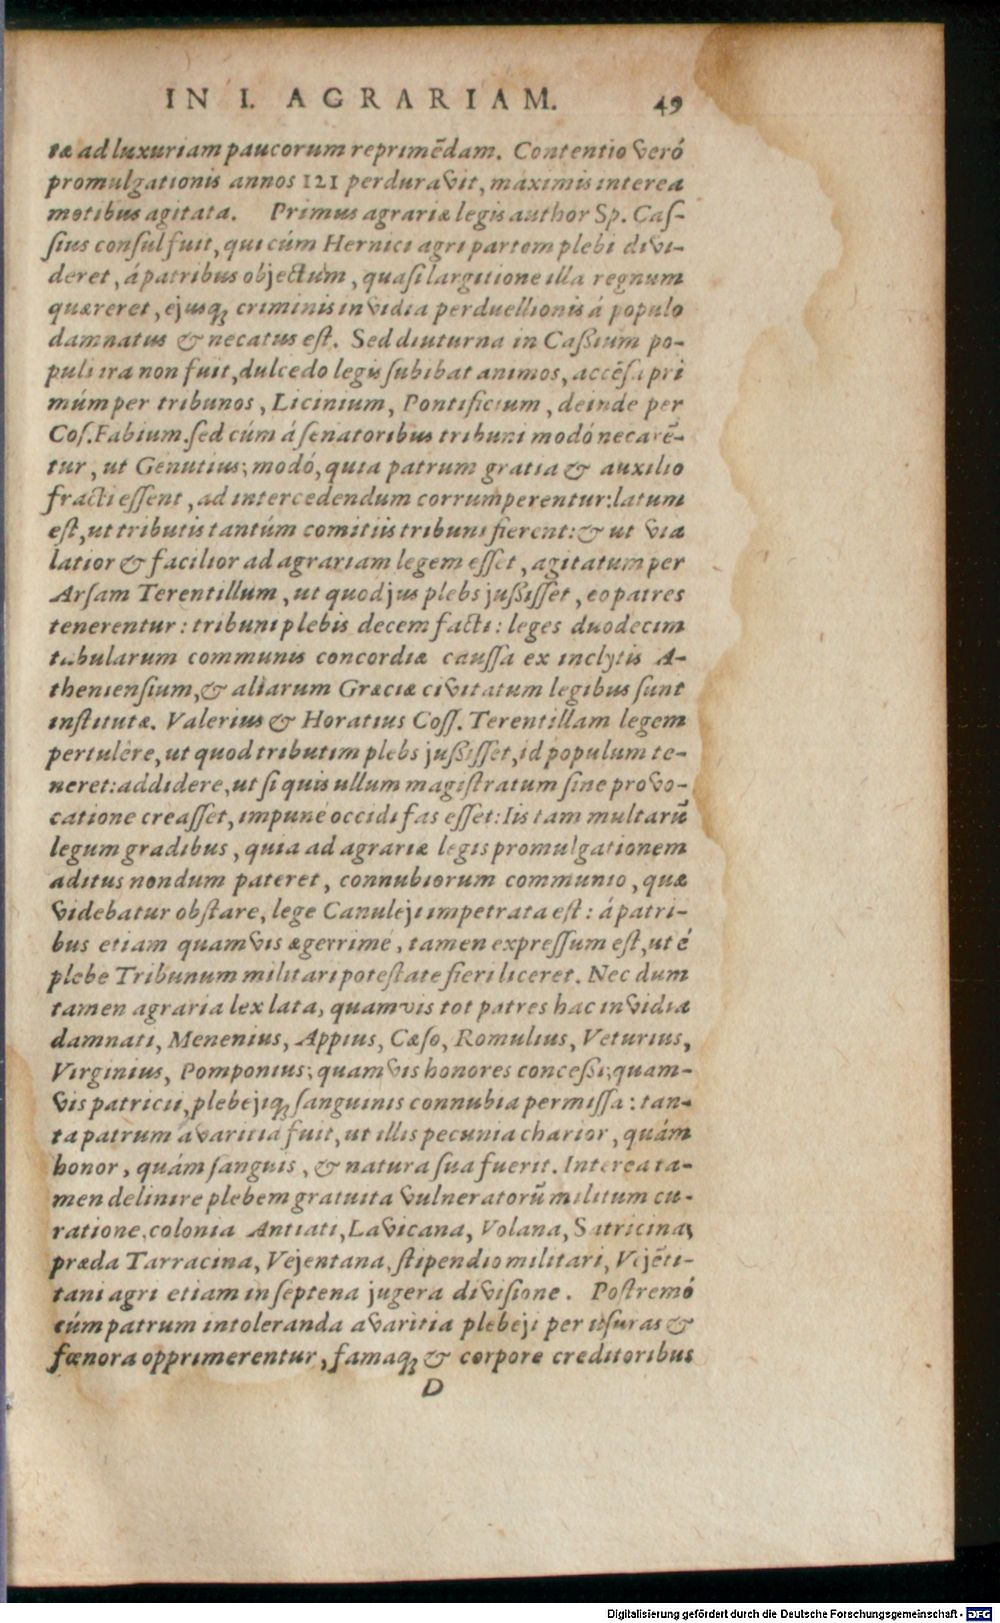 IN I. AGRARIAM. 49
tæ ad luxuriam paucorum reprimēdam. Contentio veró
promulgationis annos 121 perduravit, máximis interea
motibus agitata. Primus agrariæ legis author Sp. Caſ-
ſius conſul fuit, qui cúm Hernici agri partem plebi divi-
deret, á patribus objectum, quaſi largitione illa regnum
quæreret, ejusq́; criminis invidia perduellionis á populo
damnatus & necatus eſt. Sed diuturna in Caßium po-
puli ira non fuit, dulcedo legis ſubibat animos, accēſa pri
múm per tribunos, Licinium, Pontificium, deinde per
Coſ. Fabium. ſed cúm á ſenatoribus tribuni modó necarē-
tur, ut Genutius; modó, quia patrum gratia & auxilio
fracti eſſent, ad intercedendum corrumperentur: latum
eſt, ut tributis tantúm comitiis tribuni fierent: & ut via
latior & facilior ad agrariam legem eſſet, agitatum per
Arſam Terentillum, ut quod jus plebs jußiſſet, eo patres
tenerentur: tribuni plebis decem facti: leges duodecim
tabularum communis concordiæ cauſſa ex inclytis A-
thenienſium, & aliarum Græciæ civitatum legibus ſunt
inſtitutæ. Valerius & Horatius Coſſ. Terentillam legem
pertulêre, ut quod tributim plebs jußiſſet, id populum te-
neret: addidere, ut ſi quis ullum magiſtratum ſine provo-
catione creaſſet, impuné occidi fas eſſet: Iis tam multarū
legum gradibus, quia ad agrariæ legis promulgationem
aditus nondum pateret, connubiorum communio, quæ
videbatur obſtare, lege Canuleji impetrata eſt: á patri-
bus etiam quamvis ægerrimé, tamen expreſſum eſt, ut é
plebe Tribunum militari poteſtate fieri liceret. Nec dum
tamen agraria lex lata, quamvis tot patres hac invidia
damnati, Menenius, Appius, Cæſo, Romulius, Veturius,
Virginius, Pomponius; quamvis honores conceßi; quam-
vis patricii, plebejiq́; ſanguinis connubia permiſſa: tan-
ta patrum avaritia fuit, ut illis pecunia charior, quám
honor, quám ſanguis, & natura ſua fuerit. Interea ta-
men delinire plebem gratuita vulneratorū militum cu-
ratione, colonia Antiati, Lavicana, Volana, Satricina,
præda Tarracina, Vejentana, ſtipendio militari, Vejēti-
tani agri etiam in ſeptena jugera diviſione. Poſtremó
cúm patrum intoleranda avaritia plebeji per uſuras &
fœnora opprimerentur, famaq́; & corpore creditoribus
D
Digitalisierung gefördert durch die Deutsche Forschungsgemeinschaft - DFG